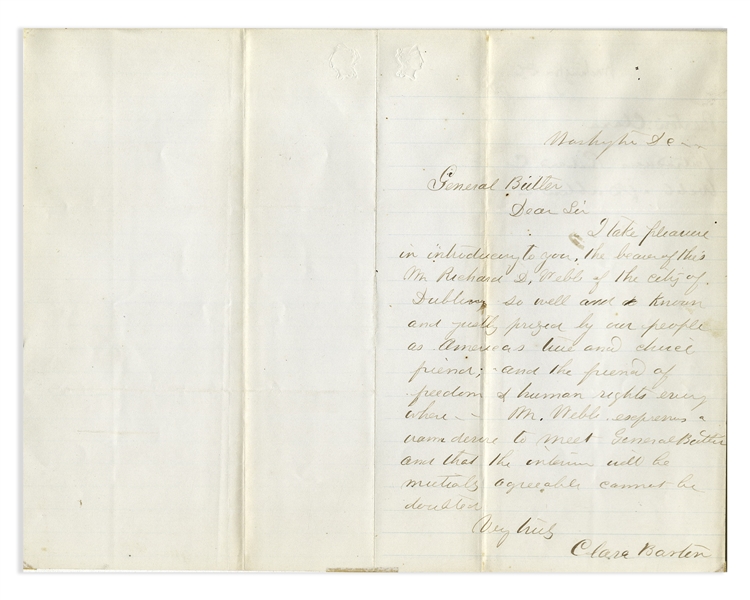 Washington D.C.
General Butler
Dear Sir
I take pleasure
in introducing to you, the bearer of this
Mr Richard D. Webb of the city of
Dublin, so well and known
and justly prized by our people
as America's true and choice
friend; and the friend of
freedom & human rights every
where - Mr. Webb expresses a
warm desire to meet General Butler
and that the interview will be
mutually agreeable cannot be
doubted
Very truly
Clara Barton